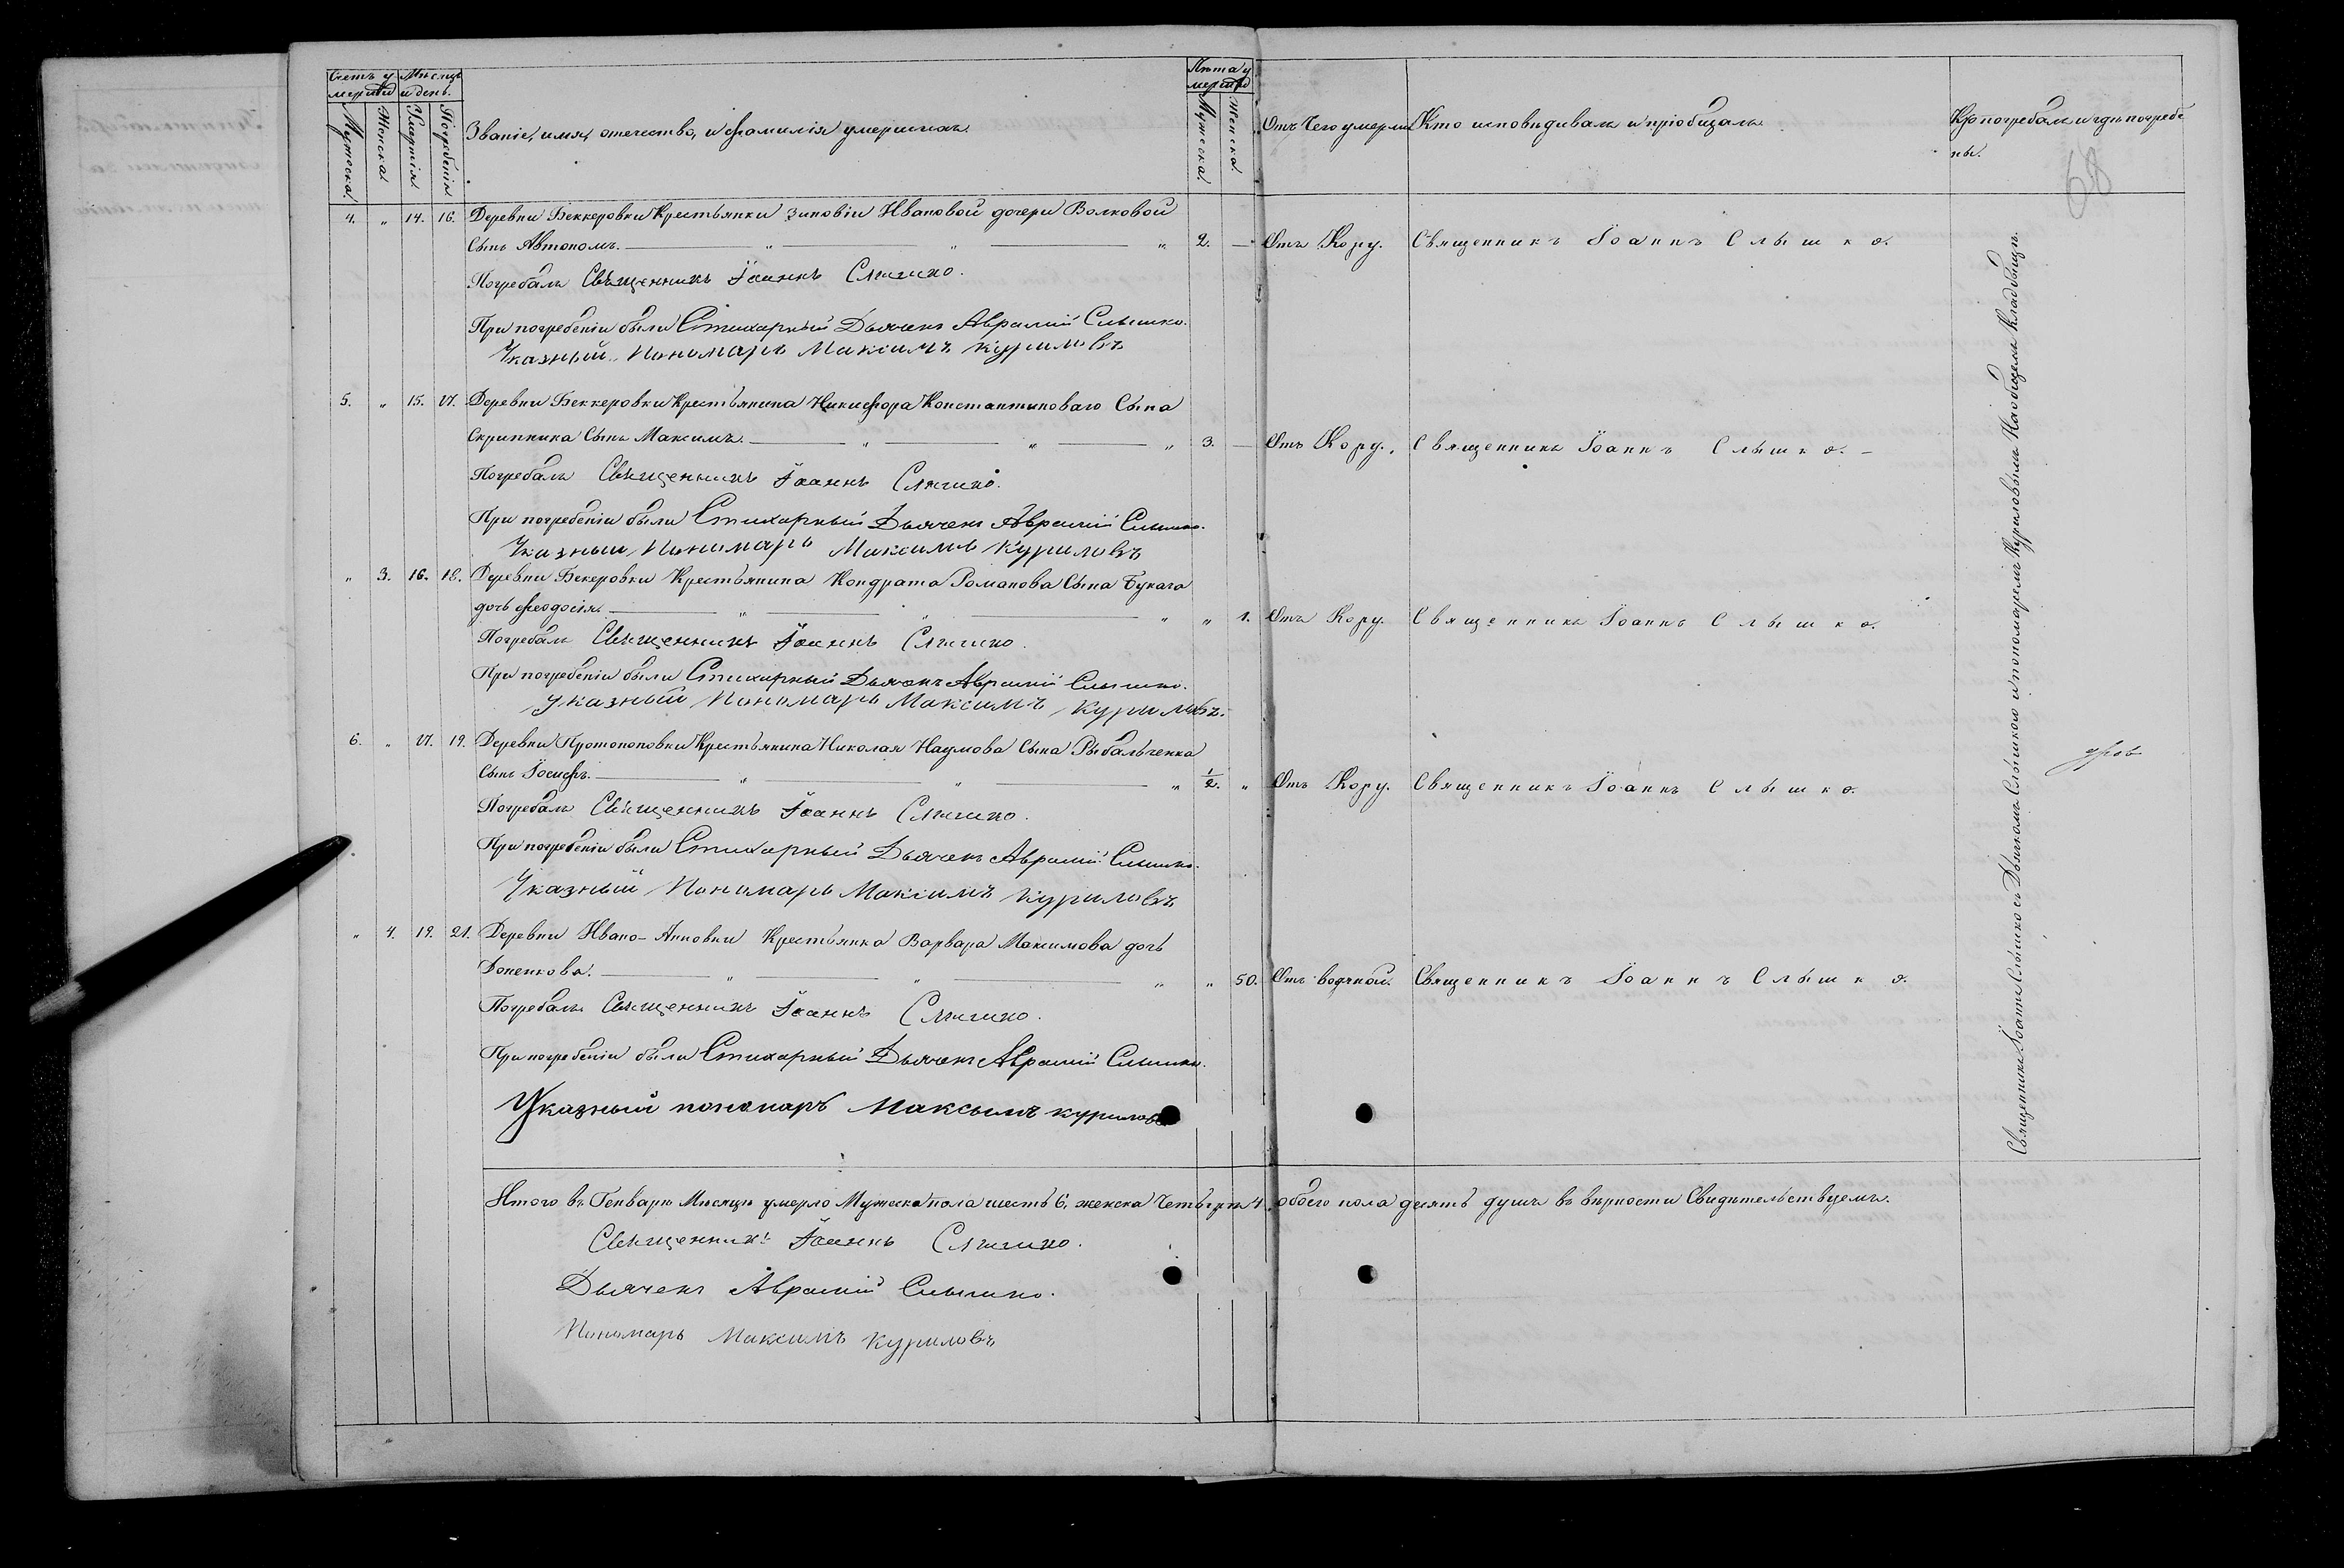 Счетъ у Мѣсяцъ Лѣта у
мершихъ и день. мершихъ
Мужеска. Женска. Умертія. Погребенія. Званіе, имя, отечество, и фамилія умершихъ. Мужеска. Женска. Отъ Чего умерли Кто исповѣдивалъ и пріобщалъ. Кто погребалъ и гдѣ погребе
ны.
68
4. „ 14. 16. Деревни Беккеровки Крестьянки Зиновіи Ивановой дочери Волковой
Сынъ Автономъ. „ „ „ 2. — Отъ Кору. Священникъ Іоаннъ Слышко.
Погребалъ Священникъ Іоаннъ Слышко.
При погребеніи были Стихарный Дьячекъ Аврамій Слышко.
Указный Пономарь Максимъ Куриловъ
5. „ 15. 17. Деревни Беккеровки Крестьянина Никифора Константиноваго Сына
Скрипника Сынъ Максимъ. „ „ „ 3. — Отъ Кору. Священникъ Іоаннъ Слышко. –
Погребалъ Священникъ Іоаннъ Слышко.
При погребеніи были Стихарный Дьячекъ Аврамій Слышко.
Указный Пономарь Максимъ Куриловъ
„ 3. 16. 18. Деревни Бекеровки Крестьянина Кондрата Романова Сына Букаго
дочь Феодосія. „ „ „ „ 1. Отъ Кору. Священникъ Іоаннъ Слышко.
Погребалъ Священникъ Іоаннъ Слышко.
При погребеніи были Стихарный Дьячекъ Аврамій Слышко.
Указный Пономарь Максимъ Куриловъ.
6. „ 17. 19. Деревни Протопоповки Крестьянина Николая Наумова Сына Рыбальченка
Сынъ Іосифъ. „ „ „ 1/2. „ Отъ Кору. Священникъ Іоаннъ Слышко.
Погребалъ Священникъ Іоаннъ Слышко.
При погребеніи были Стихарный Дьячекъ Аврамій Слышко.
Указный Пономарь Максимъ Куриловъ
„ 4. 19. 21. Деревни Ивано-Анновки Крестьянка Варвара Максимова дочь
Доненкова. „ „ „ „ 50. Отъ водяной. Священникъ Іоаннъ Слышко.
Погребалъ Священникъ Іоаннъ Слышко.
При погребеніи были Стихарный Дьячекъ Аврамій Слышко.
Указный пономарь Максымъ куриловъ
Священникъ Іоаннъ Слышко съ Дьячкомъ Слышкою и пономаремъ Куриловымъ На общемъ Кладбищѣ.
Итого въ Генварѣ Мѣсяцѣ умерло Мужеска пола шесть 6, женска Четыре 4 обоего пола десять душъ въ вѣрности Свидѣтельствуемъ.
Священникъ Іоаннъ Слышко.
Дьячекъ Аврамій Слышко.
Пономарь Максимъ Куриловъ